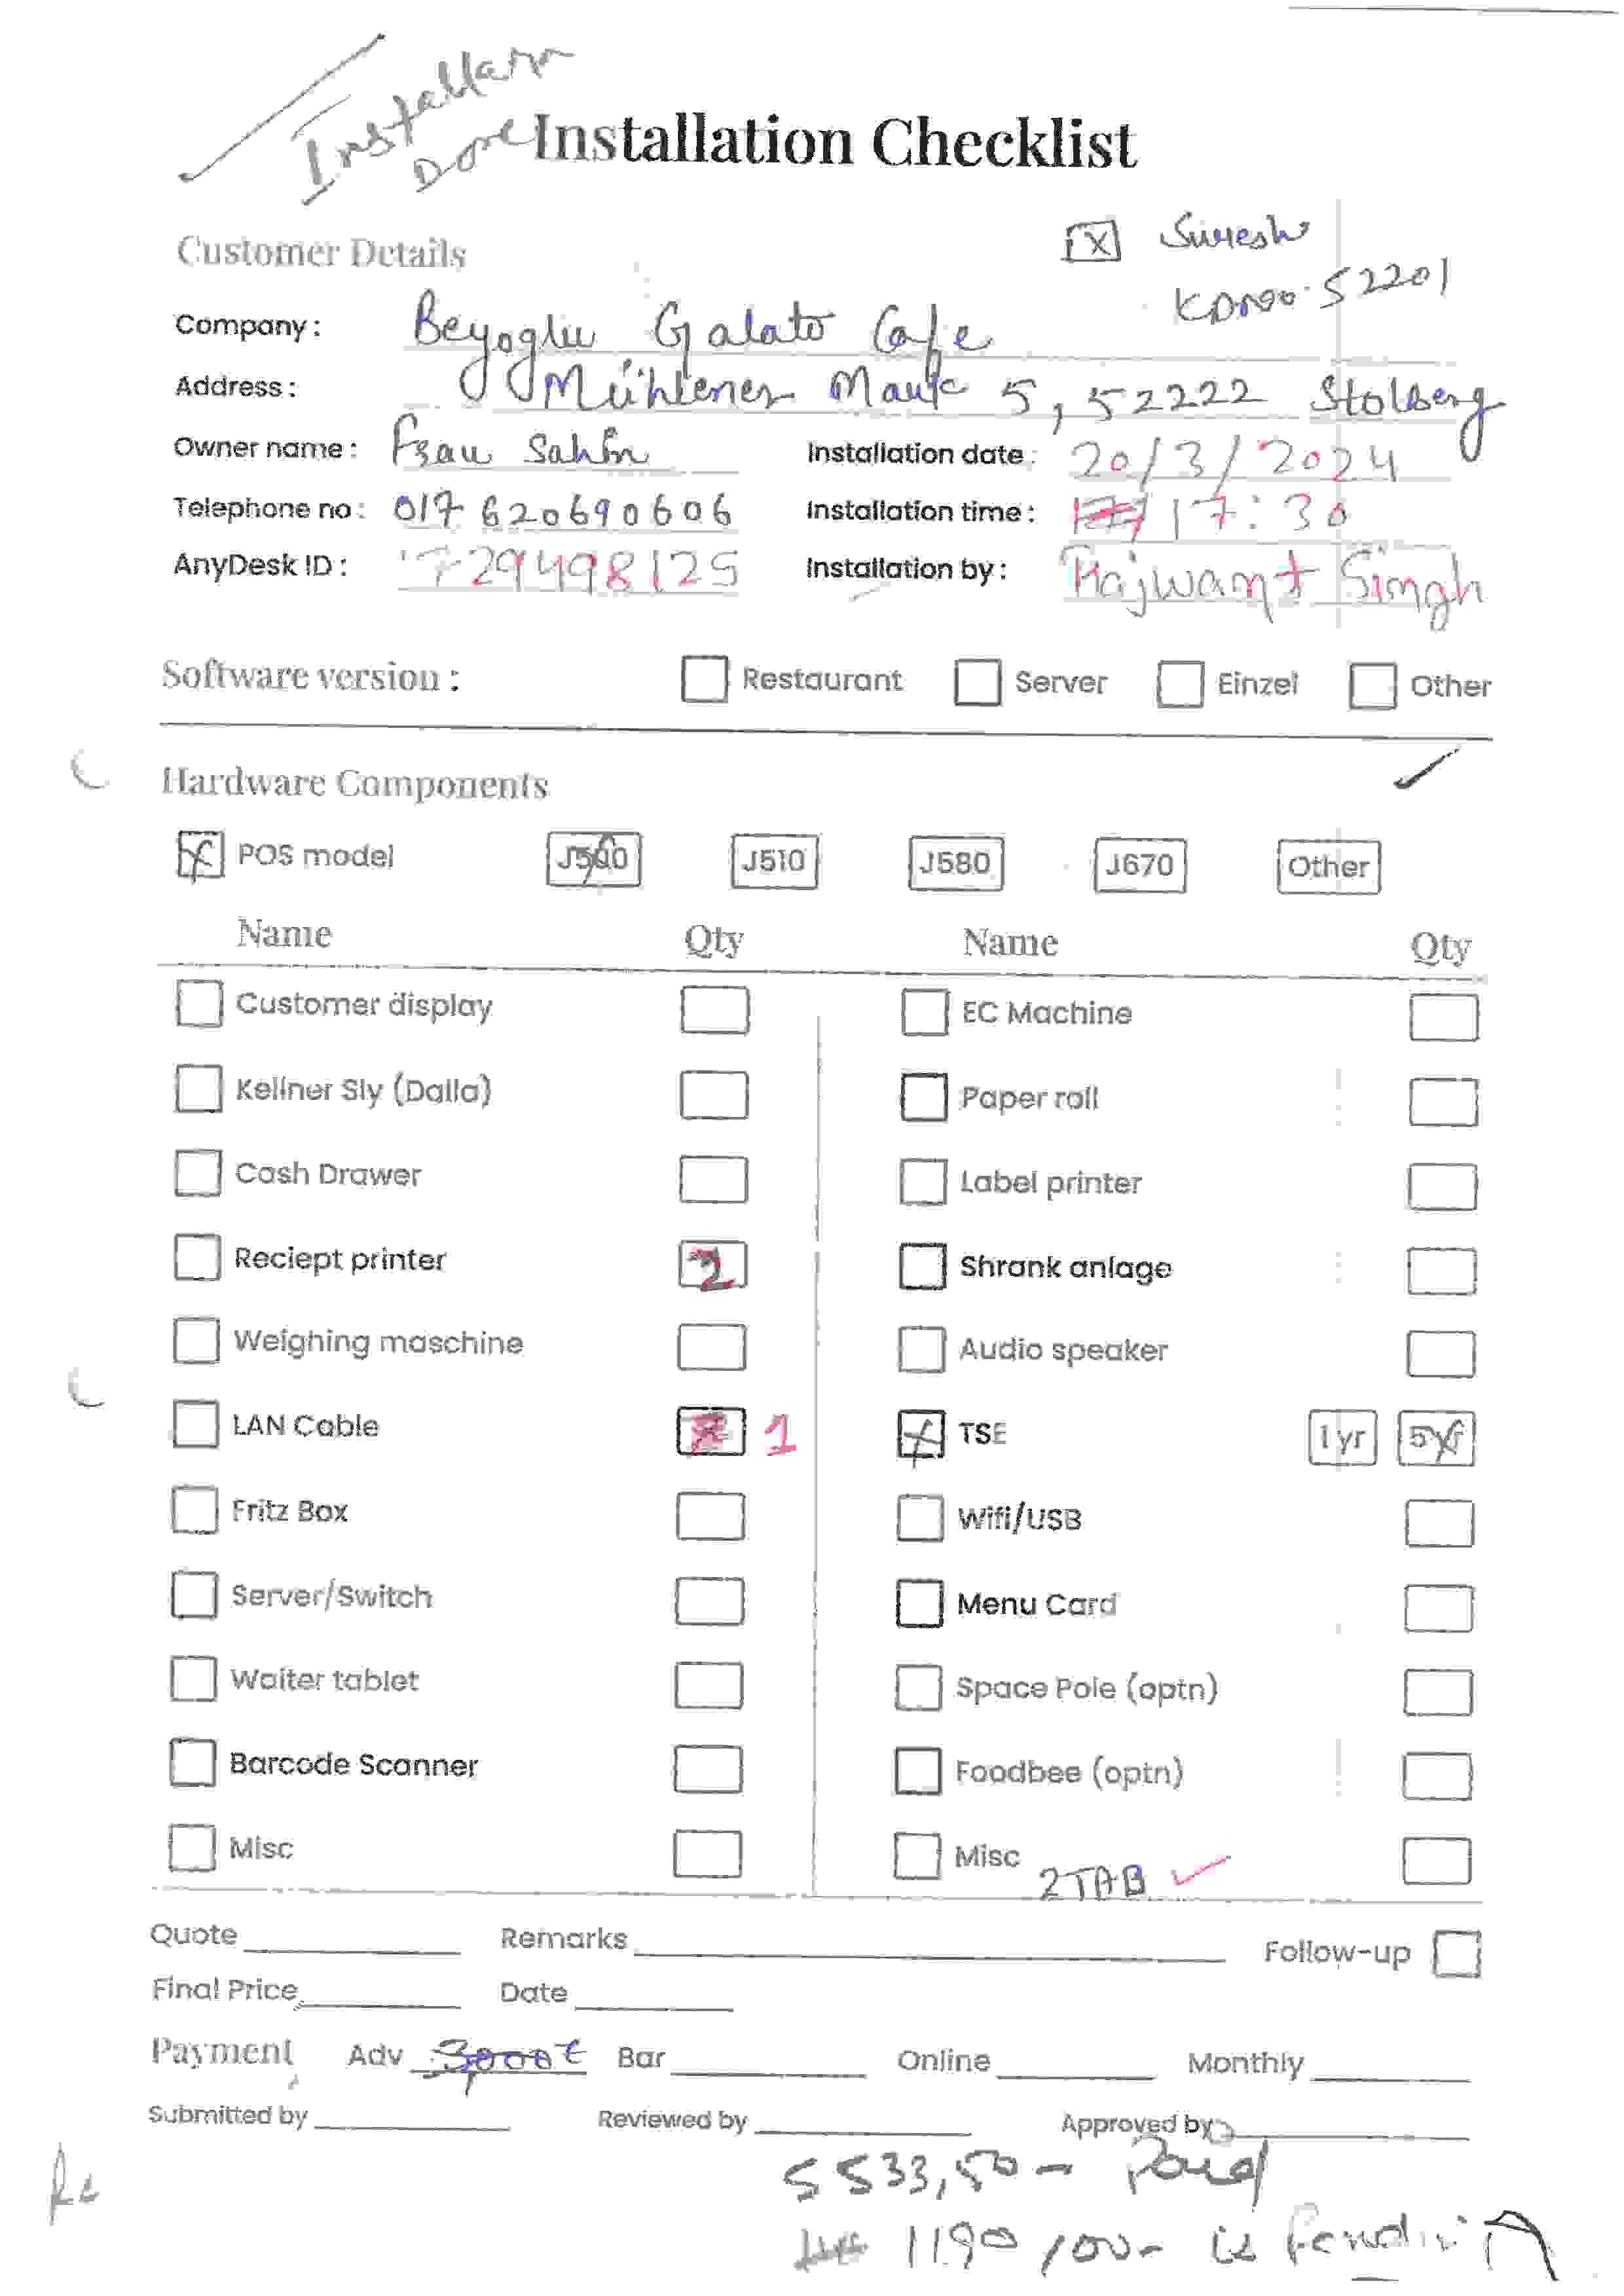 Installation
Done
Installation Checklist
Customer Details
Suresh
KDNoo. 52201
Company : Beyoglu Galato Cafe
Address : Mühlener Markt 5, 52222 Stolberg
Owner name : Frau Sahin Installation date : 20/3/2024
Telephone no : 017 620690606 Installation time : 17:30
AnyDesk ID : 729498125 Installation by : Rajwant Singh
Software version : Restaurant Server Einzel Other
Hardware Components
POS model J500 J510 J580 J670 Other
Name Qty Name Qty
Customer display EC Machine
Kellner Sly (Dalla) Paper roll
Cash Drawer Label printer
Reciept printer 2 Shrank anlage
Weighing maschine Audio speaker
LAN Cable 1 TSE 1 yr 5 yr
Fritz Box Wifi/USB
Server/Switch Menu Card
Waiter tablet Space Pole (optn)
Barcode Scanner Foodbee (optn)
Misc Misc 2TAB
Quote Remarks Follow-up
Final Price Date
Payment Adv 3,000€ Bar Online Monthly
Submitted by Reviewed by Approved by
5533,50 - Paid
1190,00- is Pending